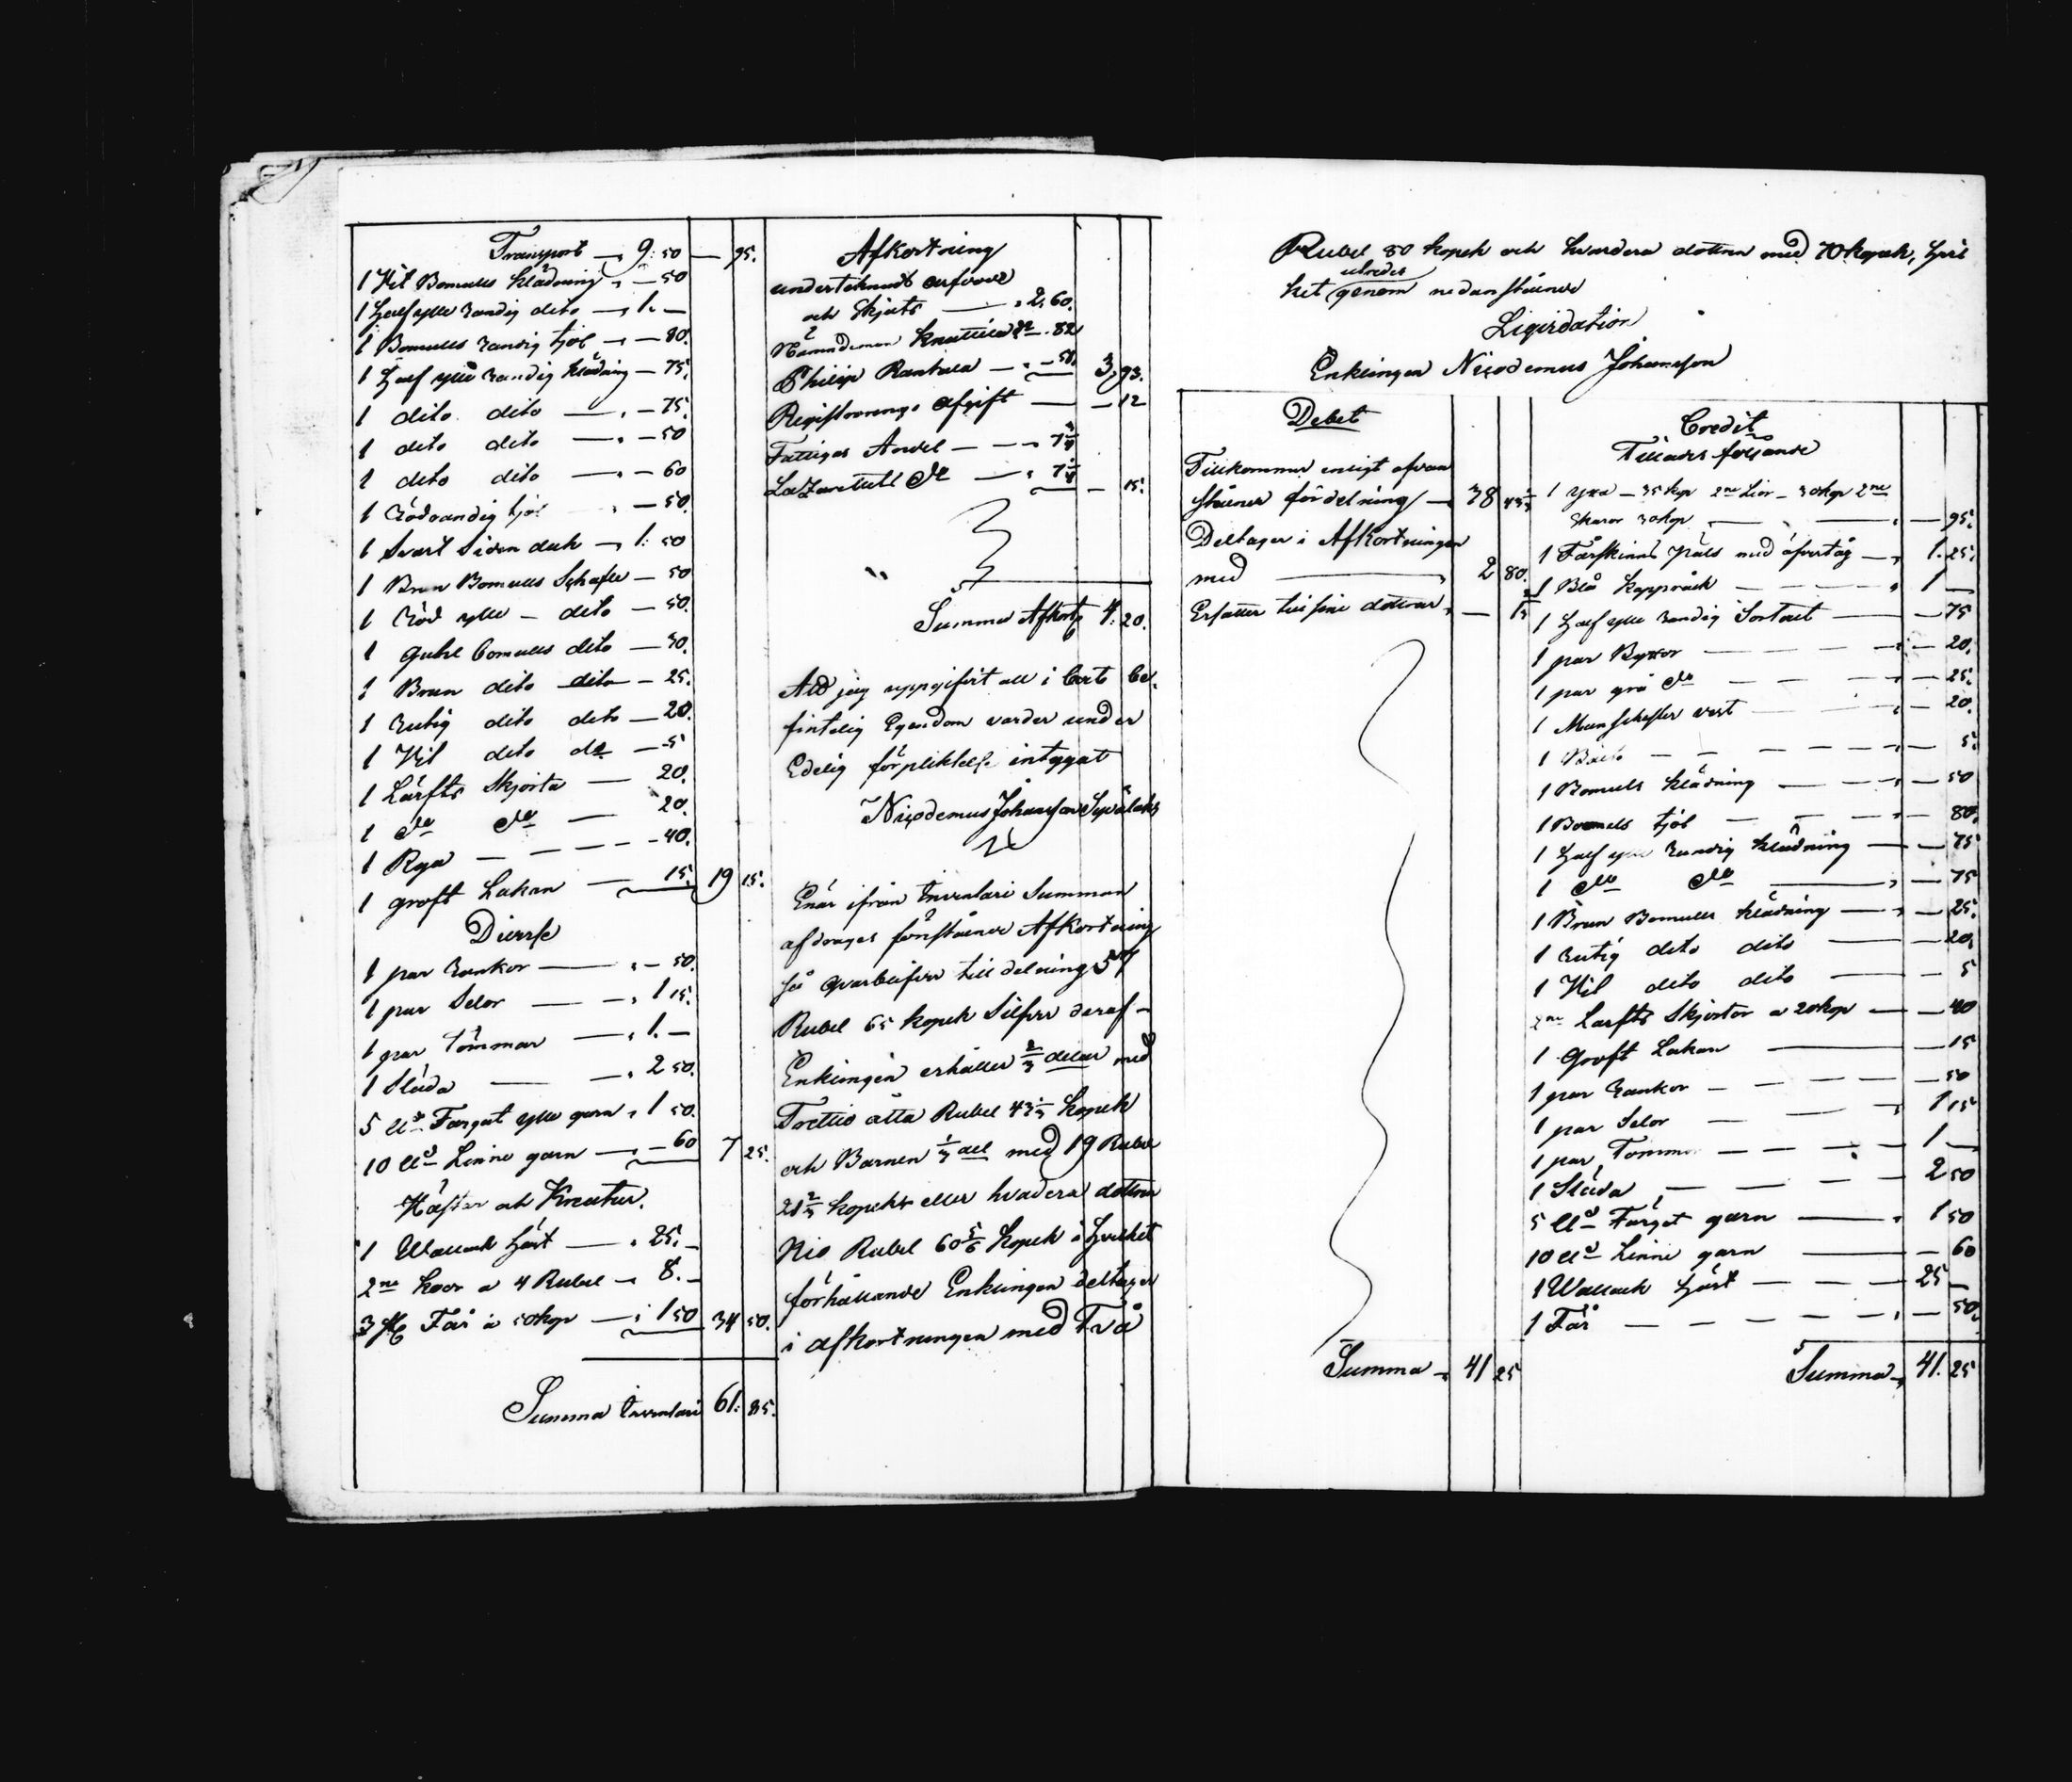 Transport — 9:50 — 95.
1 Hvit Bomulls Klädning — 50
1 Half ylle Randig dito — 1. —
1 Bomulls Randig kjol — 80.
1 Half ylle Randig klädning — 75.
1 dito dito — 75.
1 dito dito — 50
1 dito dito — 60
1 Rödrandig kjol — 50.
1 Svart Siden duk — 1: 50
1 Brun Bomulls Schale — 50
1 Röd ylle — dito — 50.
1 Guhl bomulls dito — 30.
1 Brun dito dito — 25.
1 Rutig dito dito — 20.
1 Hvit dito do — 5
1 Lärfts Skjorta — 20.
1 do do — 20.
1 Rya — 40.
1 groft Lakan — 15. 19 15.
Diverse
1 par Rankor — 50.
1 par Selor — 1 15.
1 par Tömmar — 1. —
1 Släda — 2 50.
5 ℔ Färgat ylle garn 1 50.
10 ℔ Linne garn — 60 7 25.
Hästar och Kreatur.
1 Wallack Häst — 25. —
2ne Koor a 4 Rubel — 8. —
3 st Får à 50 kop — 1 50 34 50.
Summa Inventari 61: 85.
Afkortning
undertecknads arfvode
och Skjuts — 2. 60.
Nämndeman Knuttila do — 82
Philip Rantala — 51. 3, 93.
Registrerings Afgift — 12
Fattigas Andel — 7 1/4
Lazarettet do — 7 1/4 — 15.
Summa Afkort 4. 20.
Att jag uppgifvit all i boet be-
fintelig Egendom varder under
Edelig förpliktelse intygat
Nicodemus Johansson Syvälaks
Enär ifrån Inventari Summan
afdrages förestående Afkortning
så qvarblifver till delning 57
Rubel 65 kopek Silfver deraf —
Enklingen erhåller 2/3 delar med
Trettio åtta Rubel 43 1/3 kopek
och Barnen 1/3 del med 19 Rubel
21 2/3 kopek eller hvardera dottren
Nio Rubel 60 5/6 kopek i hvilket
förhållande Enklingen deltager
i afkortningen med Två
Rubel 80 kopek och hvardera dottren med 70 kopek, hvil
utredes
ket genom nedanstående
Liqvidation
Enklingen Nicodemus Johansson
Debet
Tillkommer enligt ofvan
stående fördelning — 38 43 1/3
Deltager i Afkortningen
med — 2 80.
Ersätter till sine döttrar — 1 2/3
Summa — 41 25
Credit
Tillades följande
1 Yxa — 35 kop 2ne Liar — 30 kop 2ne
Skaror 30 kop — 95.
1 Fårskinns Päls med öfvertåg — 1. 25.
1 Blå Kapprock — 1 —
1 Half ylle Randig Sortout — 75
1 par Byxor — 20.
1 par grå do — 25.
1 Manschester vest — 20.
1 Bälte — 5.
1 Bomulls Klädning — 50
1 Bomuls kjol — 80.
1 Half ylle Randig klädning — 75
1 do do — 75
1 Brun Bomulls klädning — 25.
1 Rutig dito dito — 20.
1 Hvit dito dito — 5
2ne Larfts Skjortor a 20 kop — 40
1 Groft Lakan — 15
1 par Rankor — 50
1 par Selor — 1 15
1 par Tömmar — 1 —
1 Släda — 2 50
5 ℔ Färgat garn — 1 50
10 ℔ Linne garn — 60
1 Wallack Häst — 25 —
1 Får — 50.
Summa 41. 25